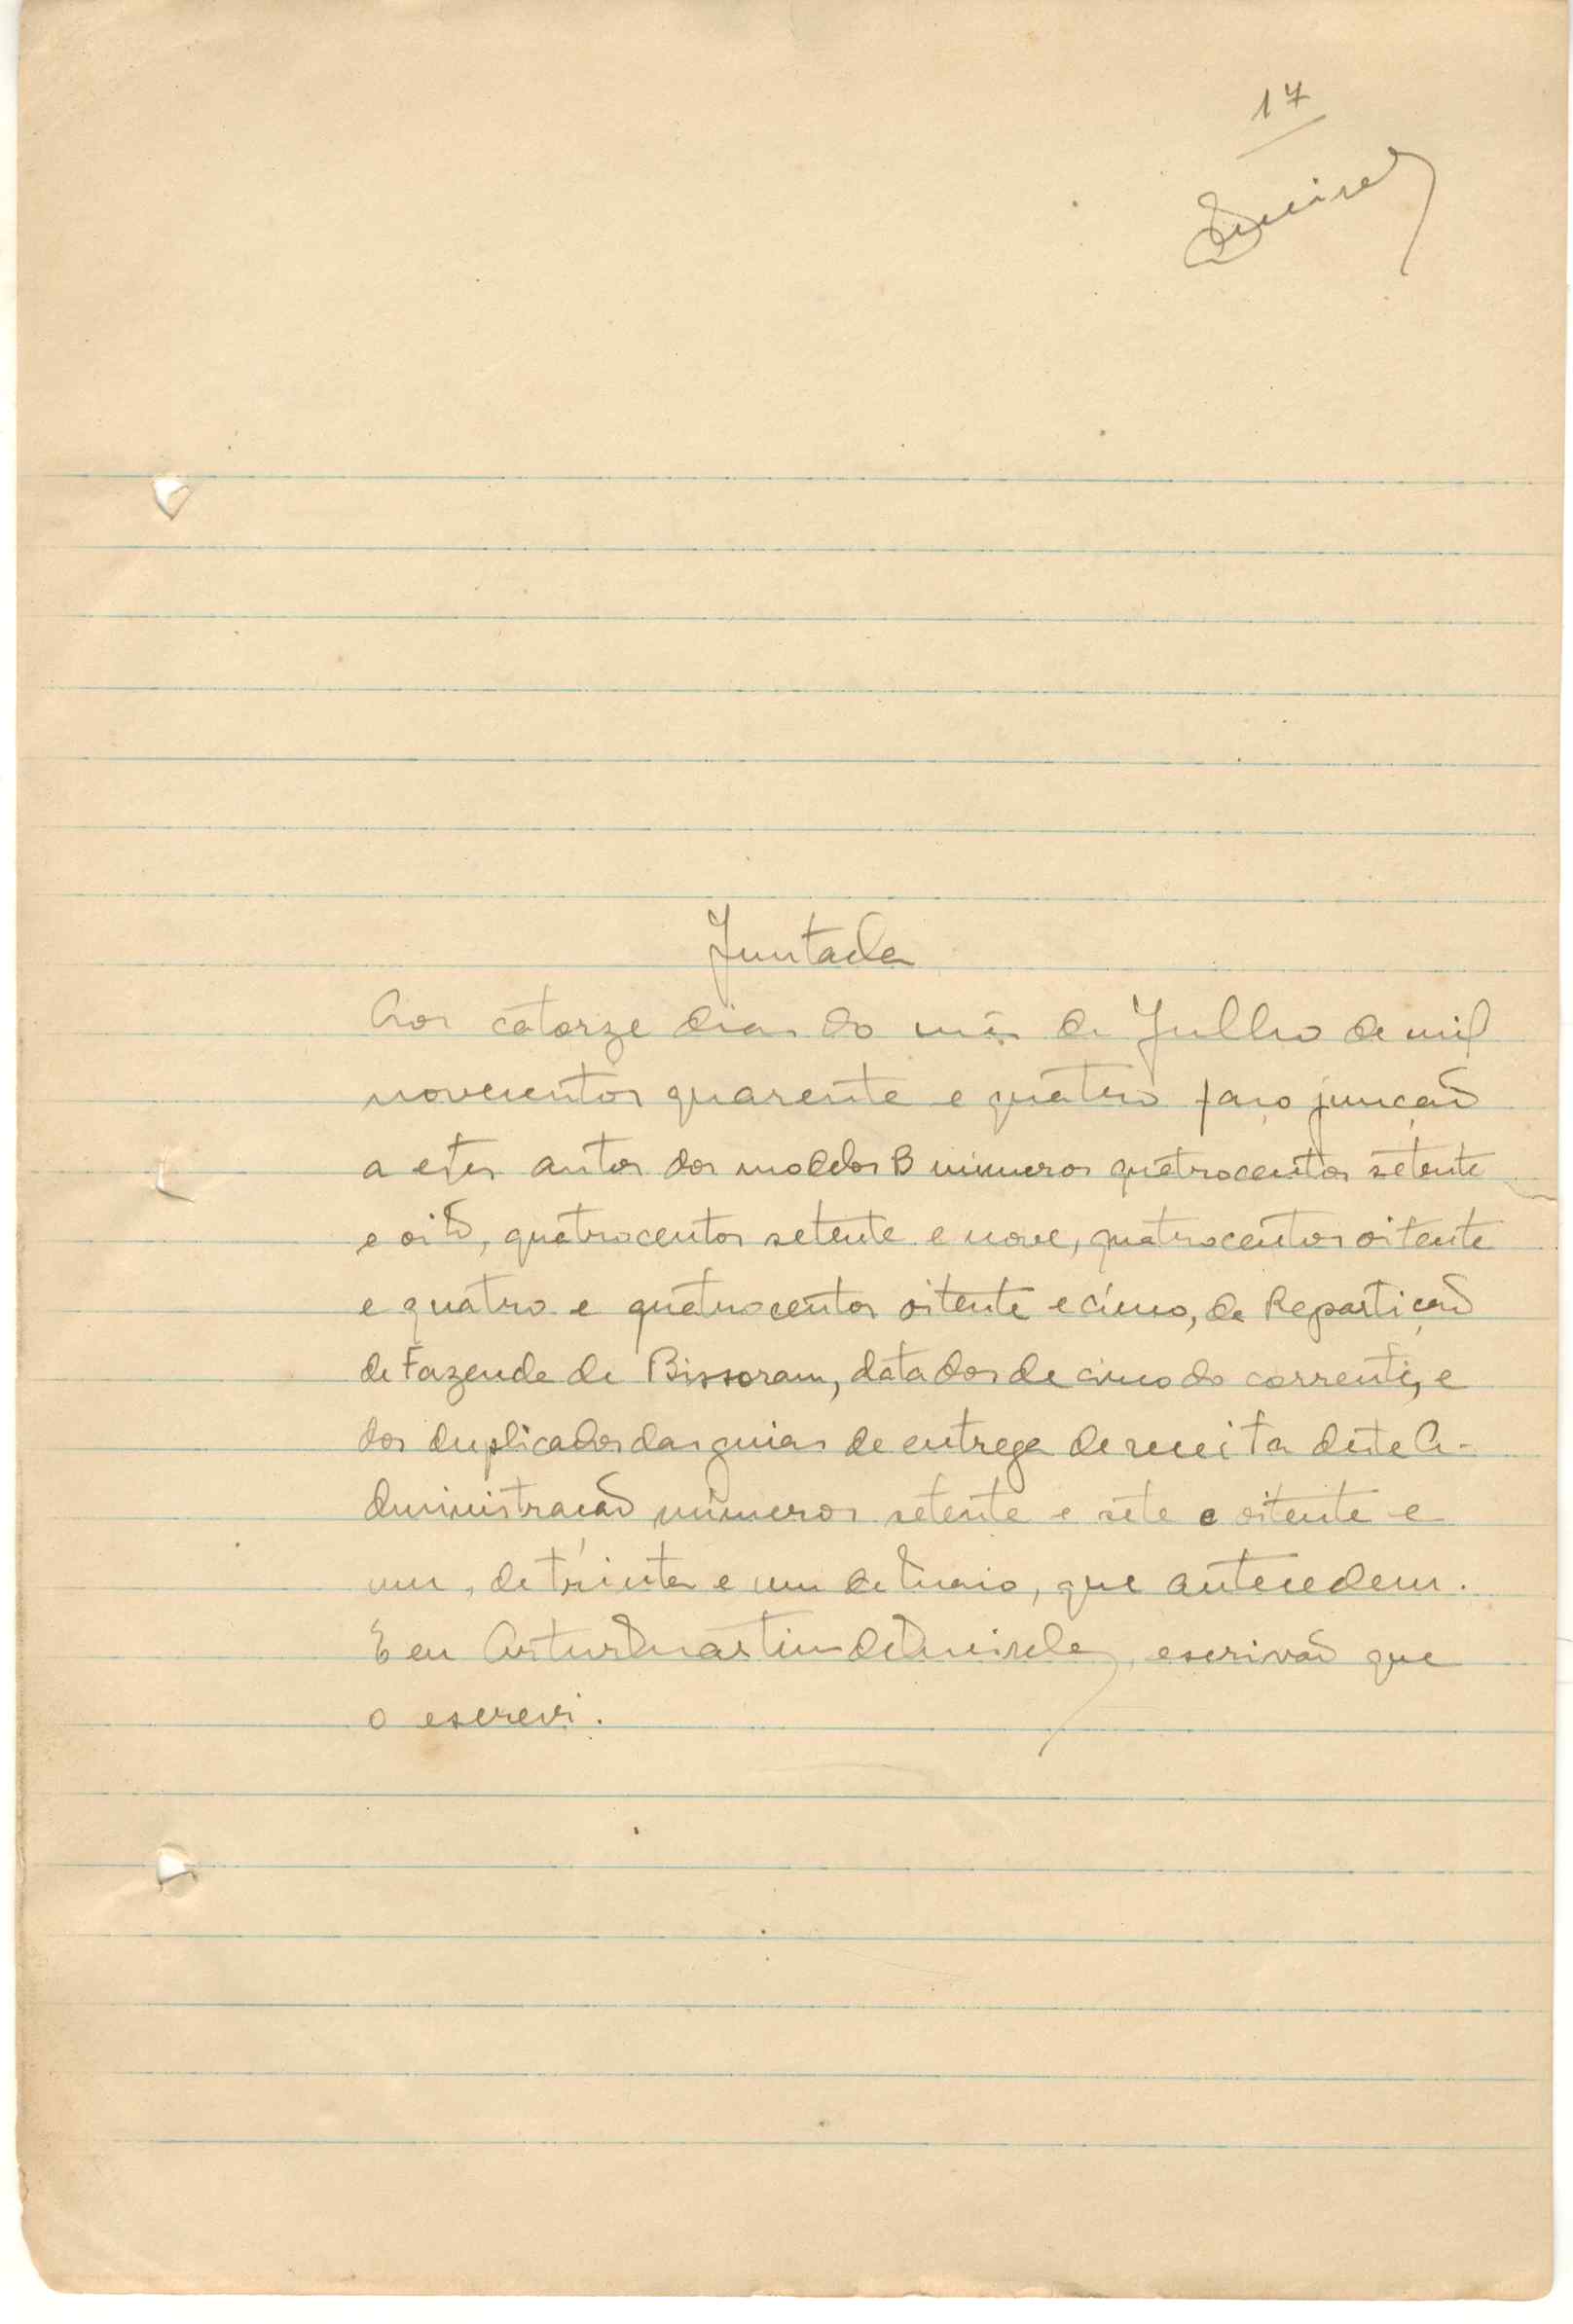 17
Juntada
Aos catorze dias do mês de Julho de mil
novecentos quarenta e quatro faço junção
a estes autos dos modelos B números quatrocentos setenta
e oito, quatrocentos setenta e nove, quatrocentos oitenta
e quatro e quatrocentos oitenta e cinco, da Repartição
de Fazenda de Bissoram, datados de cinco do corrente, e
dos duplicados das guias de entrega de receita desta A-
dministração números setenta e sete e oitenta e
um, de trinta e um de Maio, que antecedem.
E eu Artur Martins de escrivão que
o escrevi.